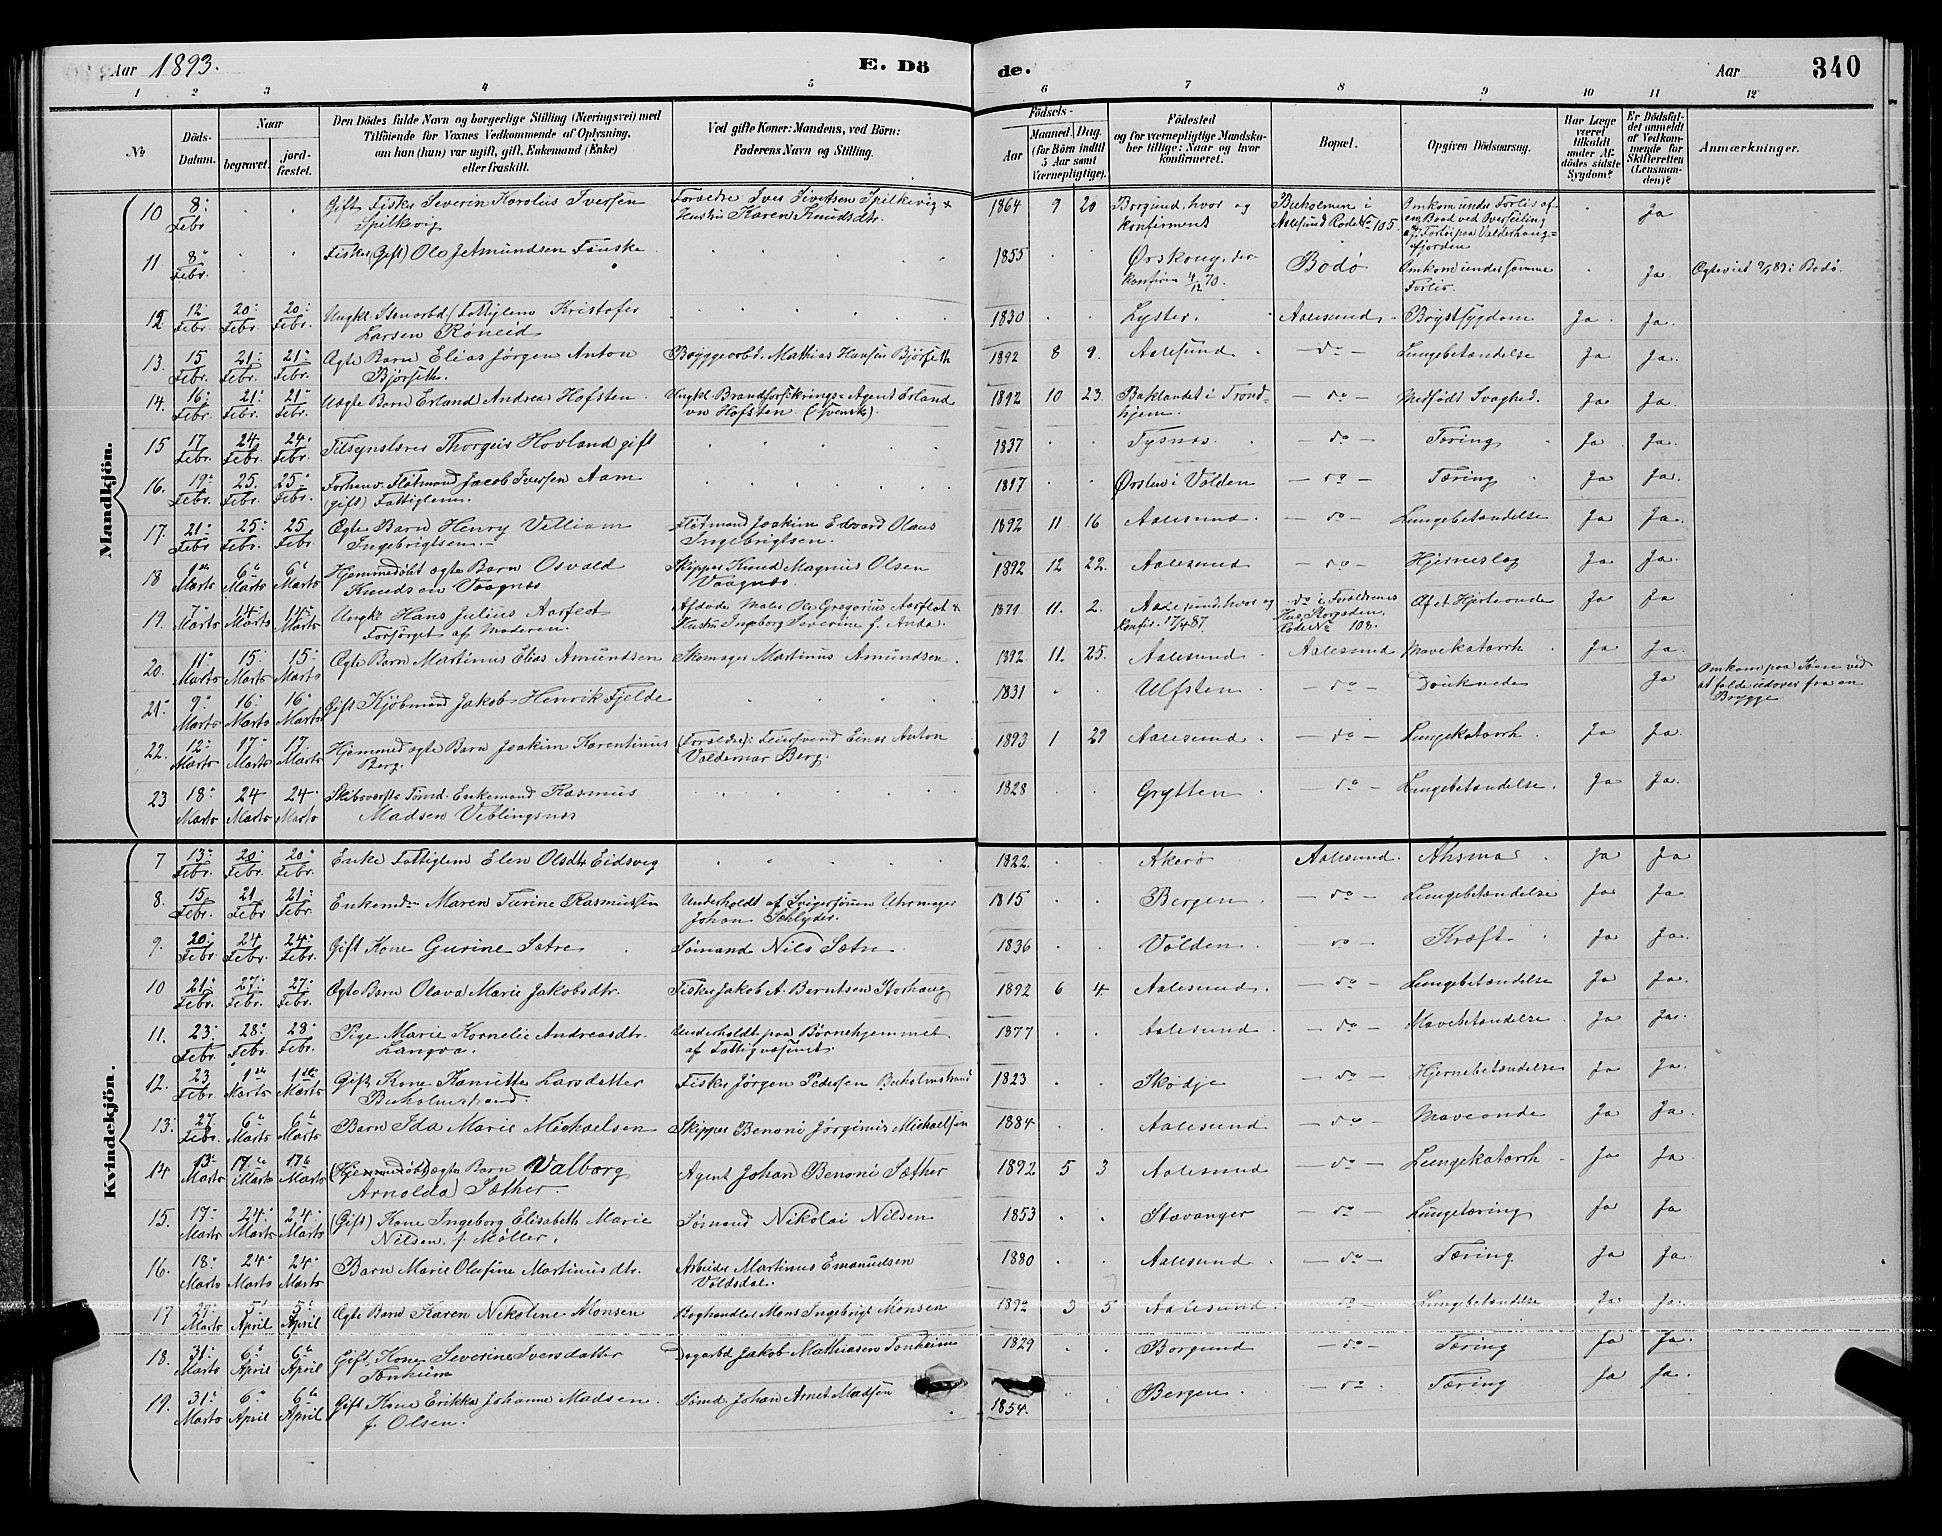 Aar 1893. E. Dö de. Aar 340
1 2 3 4 5 6 7 8 9 10 11 12
No
Döds-Datum.
Naar
begravet.
jordfæstet.
Den Dödes fulde Navn og borgerlige Stilling (Næringsvei) med
Tilföiende for Voxnes Vedkommende af Oplysning,
om han (hun) var ugift, gift, Enkemand (Enke)
eller fraskilt.
Ved gifte Koner: Mandens, ved Börn:
Faderens Navn og Stilling.
Födsels-
Aar
Maaned. Dag.
(for Börn indtil
5 Aar samt
Værnepligtige).
Födested
og for værnepligtige Mandskaber
tillige: Naar og hvor
konfirmeret.
Bopæl.
Opgiven Dödsaarsag.
Har Læge
været
tilkaldt
under Afdödes
sidste
Sygdom?
Er Dödsfaldet
anmeldt
af Vedkommende
for
Skifteretten
(Lensmanden)?
Anmærkninger.
Mandkjön.
10 8 Febr. Gift Fisker Severin Karolius Iversen Forældre Iver Sivertsen Spilkevig & 1864 9 20 Borgund, hvor og Buholmen i Omkom under Forlis af Ja
Spilkevig Hustru Karen Knudsdtr. konfirmert Aalesund Rode No 105. en Baad ved Overseiling
Valderhaug=
fjorden
11 8 Febr. Fisker (Gift) Ole Jetmundsen Fauske 1855 Ørskoug, der Bodö Omkom under samme Ja Ægteviet 9/1 89 i Bodö.
konfirm 4/12 70. Forlis.
12 12 Febr. 20 Febr. 20 Febr. Ungkl Stenarbd (Fattiglem Kristofer 1830 Lyster. Aalesund Brystsygdom Ja Ja
Larsen Röneid
13. 15 Febr. 21 Febr. 21 Febr. Ægte Barn Elias Jörgen Anton Bryggearbt. Mathias Hansen Björseth 1892 8 9. Aalesund do Lungebetændelse Ja Ja.
Björseth.
14. 16 Febr. 21 Febr. 21 Febr. Uægte Barn Erland Andreas Hofsten Ungkl Brandforsikrings=Agent Erland 1892 10 23 Baklandet i Trond= do Medfödt Svaghed. Ja Ja
von Hofsten (Svensk). hjem.
15 17 Febr. 24 Febr. 24 Febr. Tilsynslærer Thorgeir Hovland gift 1837 Tysnæs. do Tæring Ja Ja
16. 19 Febr. 25 Febr. 25 Febr. Forhenv. Flötmand Jacob Iversen Aam 1817 Ørsten i Volden do Tæring Ja Ja.
(gift) Fattiglem.
17. 21 Febr. 25 Febr. 25 Febr. Ægte Barn Henry Villiam Flötmand Joakim Edvard Olaus 1892 11 16 Aalesund. do Lungebetændelse Ja Ja.
Ingebrigtsen. Ingebrigtsen.
18 1ste Marts 6 Marts 6 Marts Hjemmedöbt ægte Barn Osvald Skipper Knud Magnus Olsen 1892 12 22. Aalesund do Hjerneslag Ja Ja.
Knudsen Vaagnæs Vaagnæs.
19. 7 Marts 14 Marts 14 Marts Ungkl Hans Julius Aarflot Afdöde Maler Ole Gregorius Aarflot & 1871. 11. 2. Aalesund, hvor og do i Forældrenes Af et Hjerteonde Ja Ja
Forsörget af Moderen. Hustru Ingeborg Severine f. Anda. konfir. 17/4 87. Hus Storgaden, Rode No 108.
20. 11 Marts 15 Marts 15 Marts Ægte Barn Martinus Elias Amundsen Skomager Martinus Amundsen. 1892. 11. 25. Aalesund Aalesund Mavekatarrh Ja Ja
21. 9 Marts 16 Marts 16 Marts Gift Kjöbmand Jakob Henrik Fjelde 1831 Ulfsten do Druknede Ja Omkom paa Söen ved
at falde udover fra en
Brygge.
22. 12 Marts 17 Marts 17 Marts Hjemmed ægte Barn Joakim Karentinus (Forældre): Feiersvend Einar Anton 1893 1 29 Aalesund. do Lungekatarrh Ja Ja
Berg. Valdemar Berg.
23 18 Marts 24 Marts 24 Marts Skibsværfts Tömd. Enkemand Rasmus 1828 Grytten do Lungebetændelse. Ja Ja.
Madsen Veblungsnæs
Kvindekjön.
7 13 Febr. 20 Febr. 20 Febr. Enke Fattiglem Elen Olsdtr Eidsvig 1822. Akerö Aalesund. Ahsma Ja Ja
8. 15 Febr. 21 Febr 21 Febr. Enkemdm Maren Turine Rasmussen Underholdt af Svigersönnen Uhrmager 1815 Bergen. do Lungebetændelse Ja Ja
Johan Schlyder.
9. 20 Febr. 24 Febr. 24 Febr. Gift Kone Gurine Sætre Sömand Nils Sætre 1836 Volden. do Kræft Ja Ja.
10 21 Febr. 27 Febr. 27 Febr. Ægte Barn Olava Marie Jakobsdtr. Fisker Jakob A. Berntsen Storhaug 1892 6 4 Aalesund. do Lungebetændelse Ja Ja.
11. 23 Febr. 28 Febr. 28 Febr. Pige Marie Kornelie Andreasdtr. Underholdt paa Börnehjemmet 1877 Aalesund do Mavebetændelse Ja Ja.
Langva. af Fattigvæsenet.
12. 23 Febr 1ste Marts 1ste Marts Gift Kone Kanutte Larsdatter Fisker Jörgen Pedersen Buholmstrand 1823 Sködje do Hjernebetændelse Ja Ja
Buholmstrand.
13. 27 Febr. 6 Marts 6 Marts Barn Ida Marie Michaelsen Skipper Benoni Jörginius Michaelsen 1884. Aalesund do Maveonde Ja Ja
14 13 Marts 17 Marts 17 Marts (Hjemmedöbt) ægte Barn Valborg Agent Johan Benoni Sæther 1892 5 3 Aalesund do Lungekatarrh Ja Ja.
Arnolda Sæther.
15. 17 Marts 24 Marts 24 Marts (Gift) Kone Ingeborg Elisabeth Marie Sömand Nikolai Nilsen 1853 Stavanger do Lungetæring Ja Ja
Nilsen, f. Möller.
16. 18 Marts 24 Marts 24 Marts Barn Marie Olufine Martinusdtr. Arbeider Martinus Emanuelsen 1880 Aalesund do Tæring Ja Ja
Voldsdal.
17 29 Marts 5 April 5 April Ægte Barn Karen Nikoline Monsen Boghandler Mons Ingebrigt Monsen 1892 3 5 Aalesund. do Lungebetændelse Ja Ja.
18. 31 Marts 6 April 6 April Gift Kone Severine Iversdatter Dagarbd Jakob Mathiasen Tonheim 1829 Borgund do Tæring Ja Ja.
Tonheim
19. 31 Marts 6 April 6 April Gift Kone Erikka Johanne Madsen. Sömd. Johan Arnt Madsen 1854. Bergen. do Tæring Ja Ja.
f. Olsen.